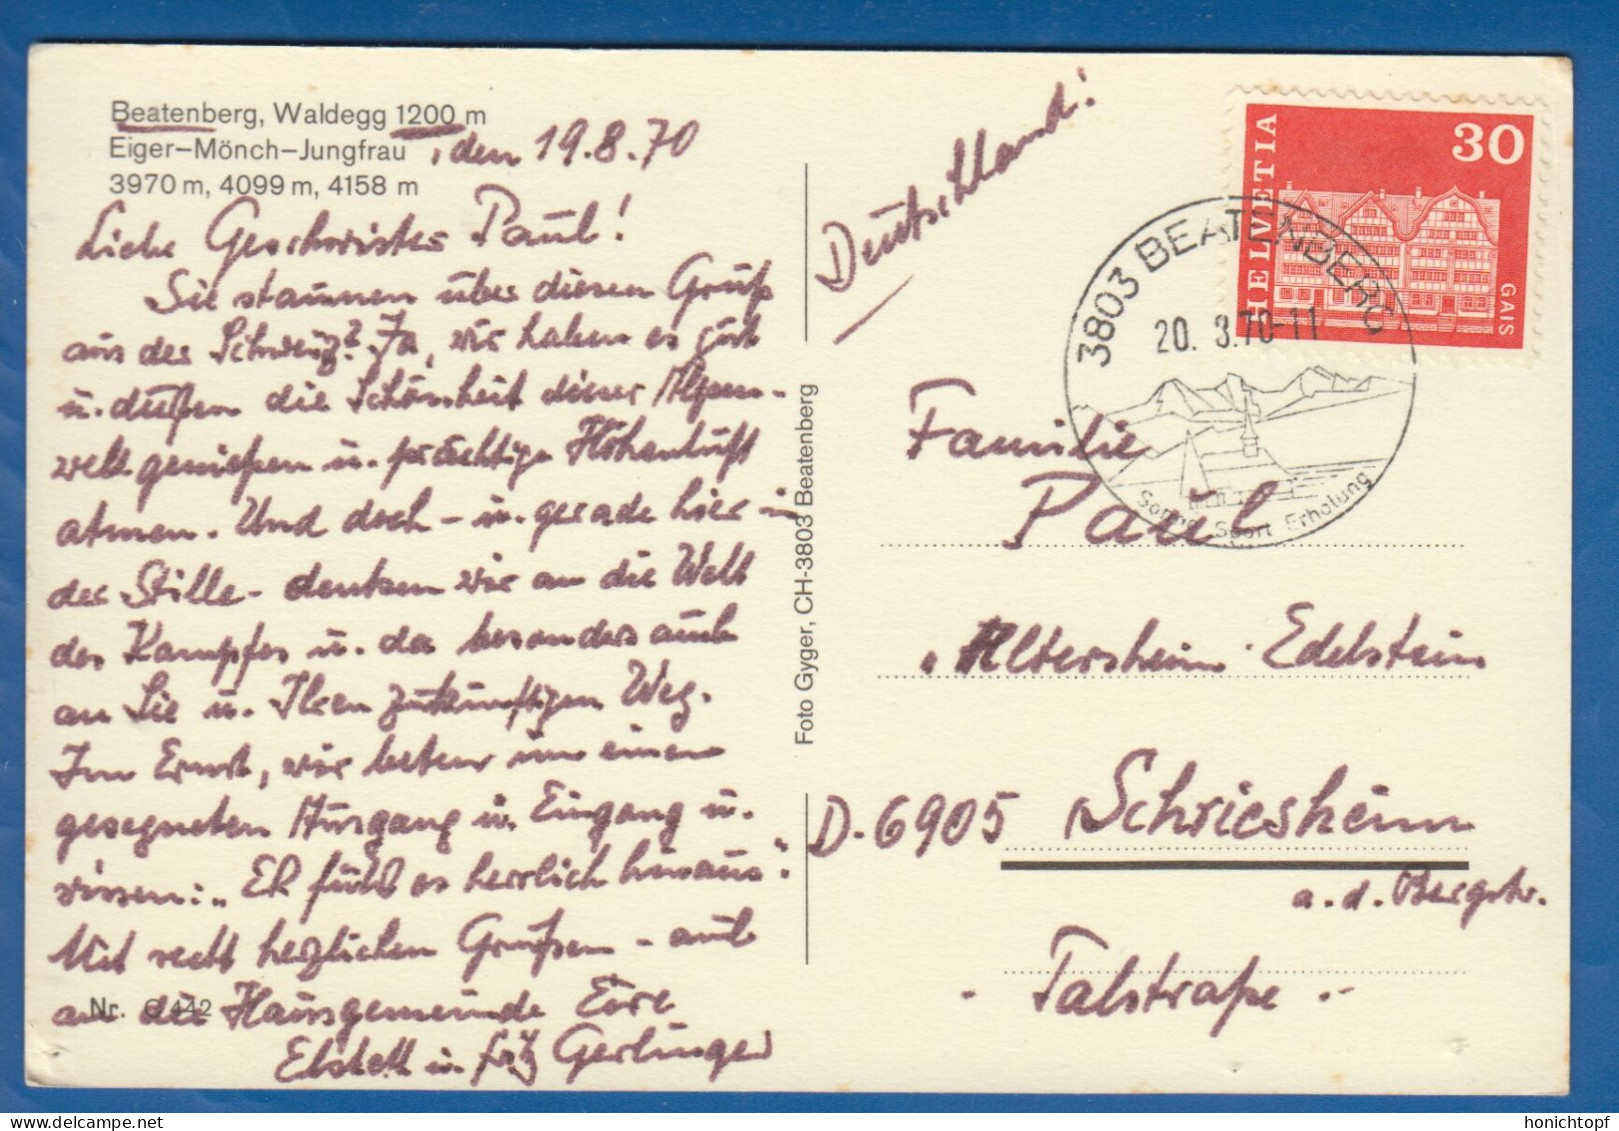 Beatenberg, Waldegg 1200 m
Eiger–Mönch–Jungfrau , den 19.8.70
3970 m, 4099 m, 4158 m
Liebe Geschwister Paul!
Sie staunen über diesen Gruß
aus der Schweiz? Ja, wir haben es gut
u. dürfen die Schönheit dieser Alpen-
welt genießen u. prächtige Höhenluft
atmen. Und doch – u. gerade hier in
der Stille – denken wir an die Welt
des Kampfes u. da besonders auch
an Sie u. Ihren zukünftigen Weg.
Im Ernst, wir beten um einen
gesegneten Ausgang u. Eingang u.
wissen: „ER führt es herrlich hinaus".
Mit recht herzlichen Grüßen – auch
an die Hausgemeinde Eure
Elsbeth u. Fritz Gerlinger
Nr. 442
Foto Gyger, CH-3803 Beatenberg
Deutschland!
HELVETIA
30
GAIS
3803 BEATENBERG
20. 8.70-11
Sonne Sport Erholung
Familie
Paul
„Altersheim Edelstein
D-6905 Schriesheim
a.d. Bergstr.
- Talstraße .-
honichtopf